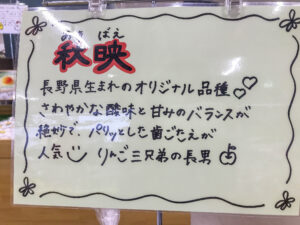 あき ばえ
秋映
長野県生まれのオリジナル品種♡♡
さわやかな酸味と甘みのバランスが
絶妙で、パリッとした歯ごたえが
人気 りんご三兄弟の長男